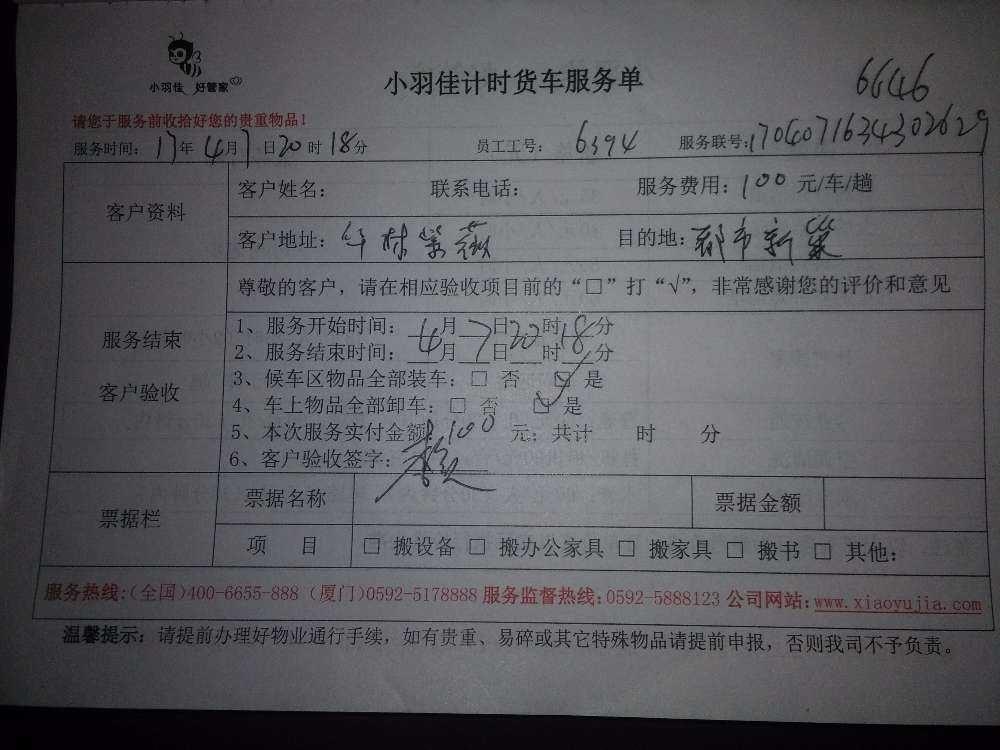 小羽佳 好管家
小羽佳计时货车服务单
6646
请您于服务前收拾好您的贵重物品!
服务时间: 17年4月7日20时18分 员工工号: 6394 服务联号:1704071634302629
客户资料
客户姓名: 联系电话: 服务费用:100元/车/趟
客户地址: 目的地:都市新巢
服务结束
客户验收
尊敬的客户，请在相应验收项目前的“□”打“√”，非常感谢您的评价和意见
1、服务开始时间: 4月7日20时18分
2、服务结束时间: 月 日 时 分
3、候车区物品全部装车:□ 否 ☑ 是
4、车上物品全部卸车:□ 否 ☑ 是
5、本次服务实付金额:100 元; 共计 时 分
6、客户验收签字:
票据栏
票据名称 票据金额
项 目 □ 搬设备 □ 搬办公家具 □ 搬家具 □ 搬书 □ 其他:
服务热线:(全国)400-6655-888 (厦门)0592-5178888 服务监督热线:0592-5888123 公司网站:www.xiaoyujia.com
温馨提示: 请提前办理好物业通行手续，如有贵重、易碎或其它特殊物品请提前申报，否则我司不予负责。